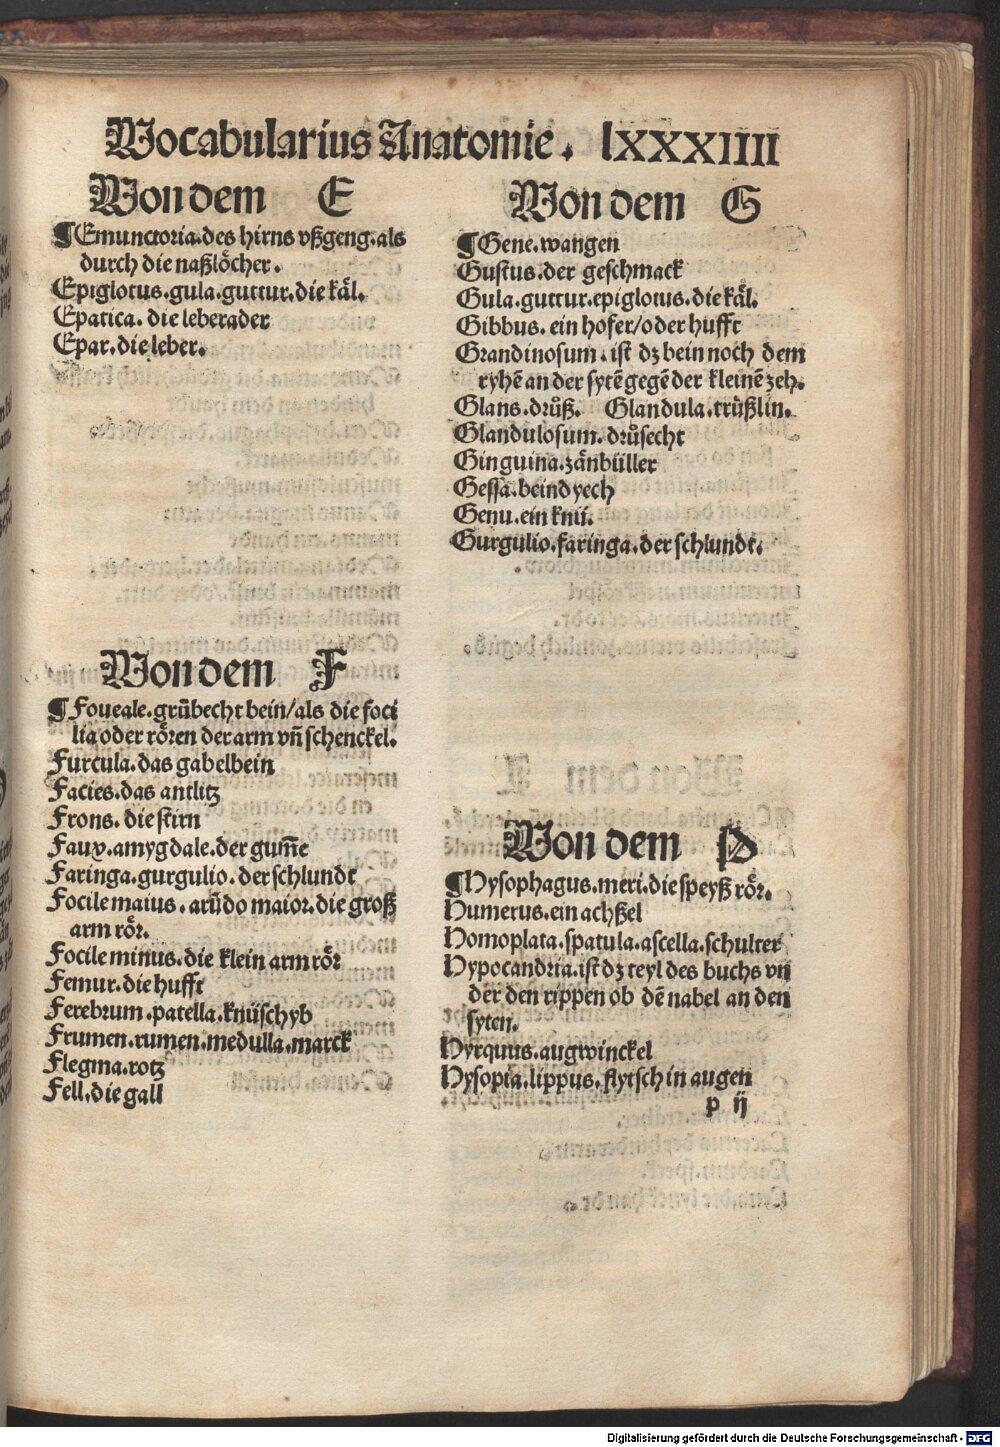 Vocabularius Anatomie. lxxxiiii
Von dem E
¶Emunctoria.des hirns vßgeng.als
durch die naßlöcher.
Epiglotus.gula.guttur.die käl.
Epatica. die leberader
Epar.die leber.
Von dem F
¶Foueale.grůbecht bein/als die foci
lia oder rören der arm vñ schenckel.
Furcula.das gabelbein
Facies.das antlitz
Frons.die stirn
Faux.amygdale.der gum̄e
Faringa.gurgulio.der schlundt
Focile maius.arũdo maior.die groß
arm rör.
Focile minus.die klein arm rör
Femur.die hufft
Ferebrum.patella.knüschyb
Frumen.rumen.medulla.marck
Flegma.rotz
Fell.die gall
Von dem G
¶Gene.wangen
Gustus.der geschmack
Gula.guttur.epiglotus.die käl.
Gibbus.ein hofer/oder hufft
Grandinosum.ist dz bein noch dem
ryhē an der sytē gegē der kleinē zeh.
Glans.drůß. Glandula.trüßlin.
Glandulosum.drůsecht
Ginguina.zänbüller
Gessa.beind yech
Genu.ein knü.
Gurgulio.faringa.der schlundt.
Von dem H
¶Hysophagus.meri.die speyß rör.
Humerus.ein achßel
Homoplata.spatula.ascella.schulter
Hypocandria.ist dz teyl des buchs vn
der den rippen ob dē nabel an den
syten.
Hyrquus.augwinckel
Hysopia.lippus.flytsch in augen
p ij
Digitalisierung gefördert durch die Deutsche Forschungsgemeinschaft - DFG